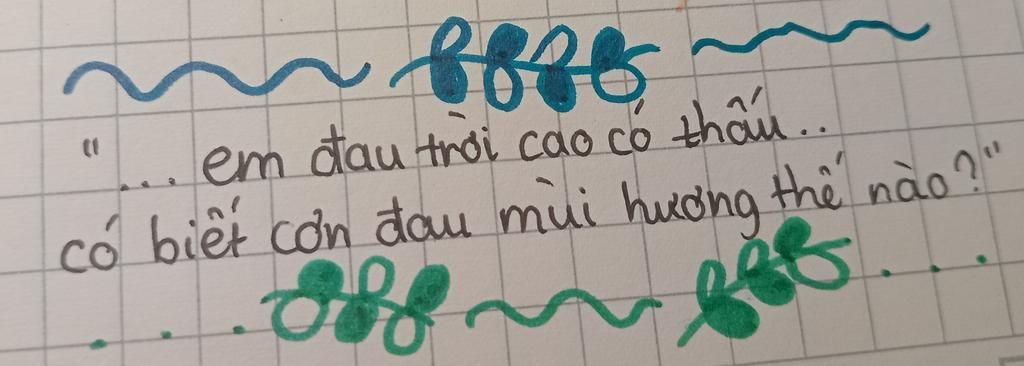 "... em đau trời cao có thấu..
có biết cơn đau mùi hương thế nào?"